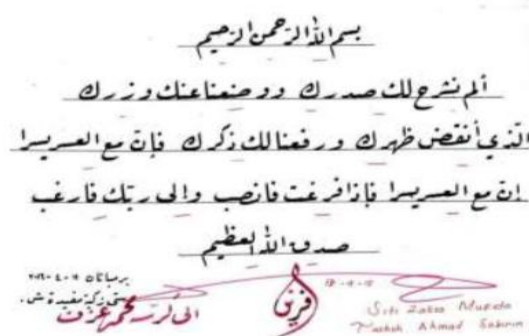 بسم الله الرحمن الرحيم
ألم نشرح لك صدرك ووضعنا عنك وزرك
الذي أنقض ظهرك ورفعنا لك ذكرك فإن مع العسر يسرا
إن مع العسر يسرا فإذا فرغت فانصب وإلى ربك فارغب
صدق الله العظيم
Siti Zakia
Ahmad